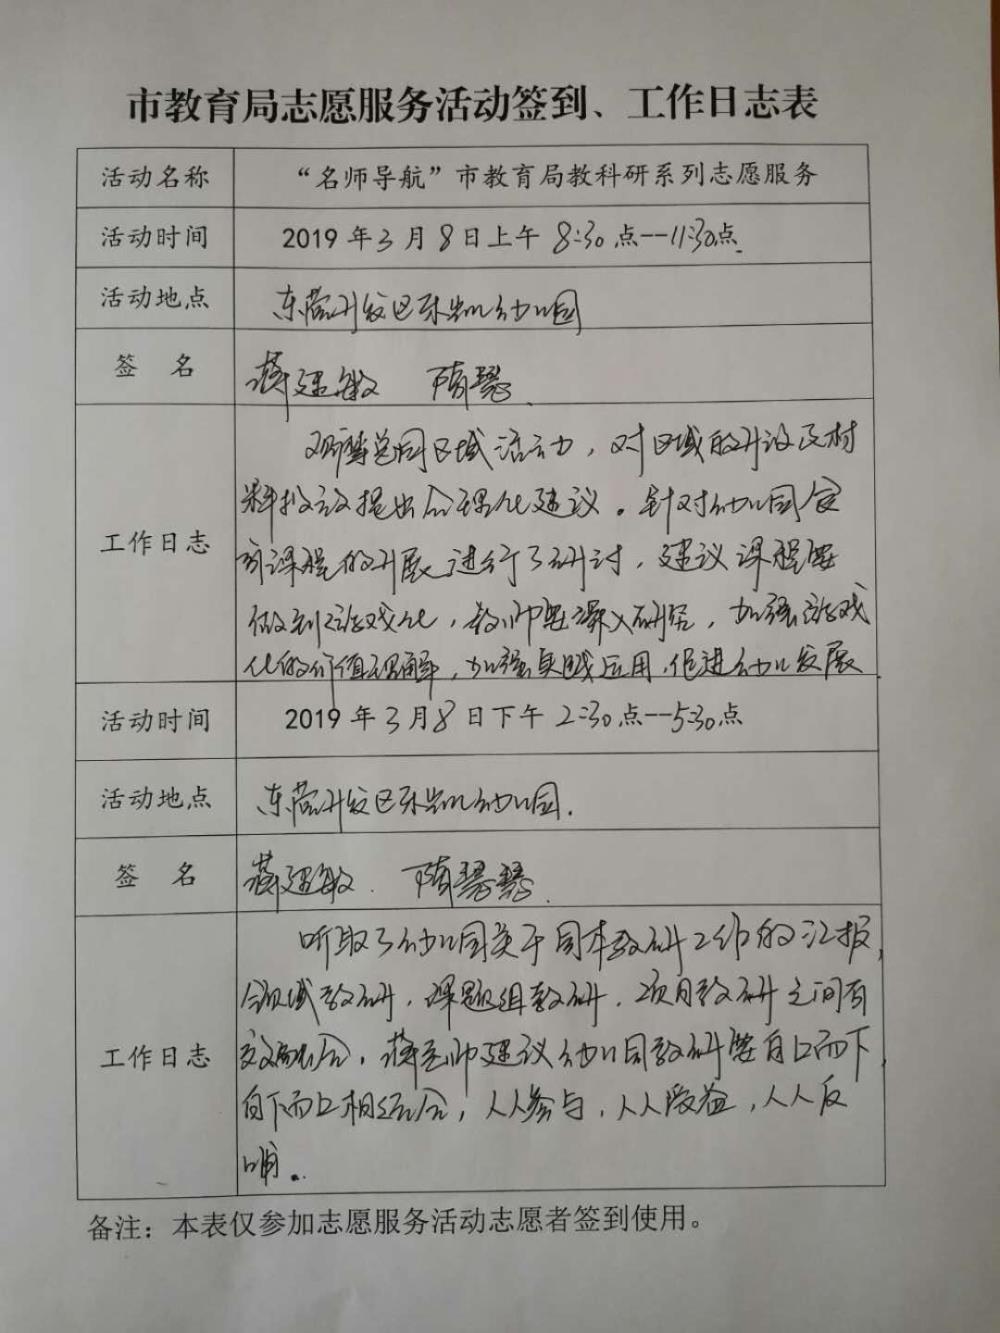 市教育局志愿服务活动签到、工作日志表
活动名称 “名师导航”市教育局教科研系列志愿服务
活动时间 2019年3月8日上午8:30点--11:30点
活动地点 东营开发区东凯幼儿园
签 名 蒋建敏
工作日志
区域活动，对区域的开设及材
料投放提出合理化建议。针对幼儿园食
育课程的开展进行了研讨，建议课程要
做到游戏化，教师要深入研究，加强游戏
化的价值理解，加强实践运用，促进幼儿发展
活动时间 2019年3月8日下午2:30点--5:30点
活动地点 东营开发区东凯幼儿园.
签 名 蒋建敏
工作日志
听取了幼儿园关于园本教研工作的汇报，
领域教研，课题组教研，项目教研之间有
效融合，蒋老师建议幼儿园教研要自上而下，
自下而上相结合，人人参与，人人受益，人人反
哺。
备注：本表仅参加志愿服务活动志愿者签到使用。